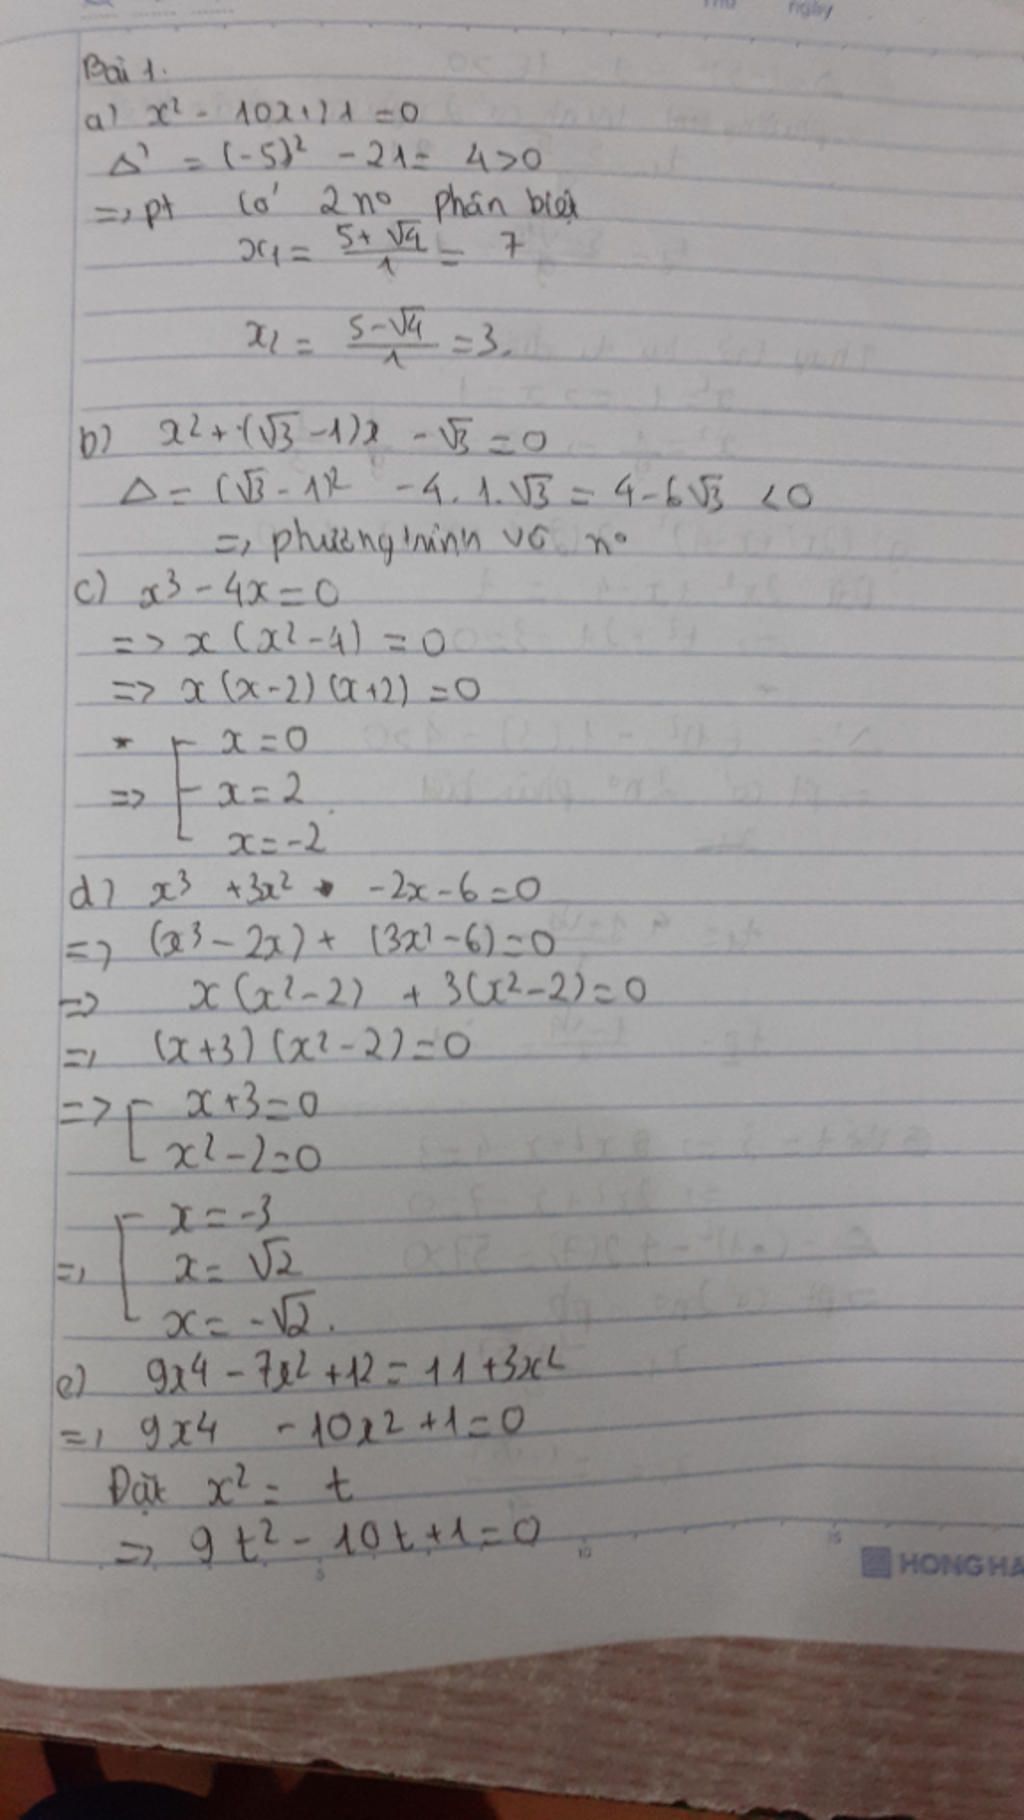 ngày
Bài 1.
a) x² - 10x+21 = 0
Δ' = (-5)² - 21 = 4 > 0
=> pt có 2 n₀ phân biệt
x₁ = (5+√4)/1 = 7
x₂ = (5-√4)/1 = 3.
b) x² + (√3 -1)x - √3 = 0
Δ = (√3 - 1)² - 4.1.√3 = 4 - 6√3 < 0
=> phương trình vô n₀
c) x³ - 4x = 0
=> x (x² - 4) = 0
=> x (x-2) (x+2) = 0
x = 0
=> [ x = 2
x = -2
d) x³ + 3x² - 2x - 6 = 0
=> (x³ - 2x) + (3x² - 6) = 0
=> x (x² - 2) + 3(x² - 2) = 0
=> (x+3) (x² - 2) = 0
=> [ x+3 = 0
x² - 2 = 0
x = -3
=> [ x = √2
x = -√2.
e) 9x⁴ - 7x² + 12 = 11 + 3x²
=> 9x⁴ - 10x² + 1 = 0
Đặt x² = t
=> 9t² - 10t + 1 = 0
5 10 15
HONG HA